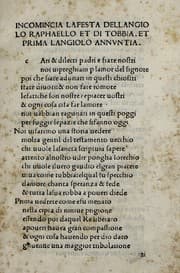 INCOMINCIA LA FESTA DELLANGIO
LO RAPHAELLO ET DI TOBBIA. ET
PRIMA LANGIOLO ANNVNTIA.
c Ari & dilecti padri e frate nostri
noi ui preghian p lamor del signore
poi che siate adunati in questi chiostri
state diuoti & non fate romore
le fatiche son nostre e piaceri uostri
& ogni cosa ci fa far lamore
noi uabbian ragunati in questi poggi
per fuggir le spasse che si fanno oggi
Noi uisareno una storia uedere
molta gentil del testamento uechio
chi uuole lasancta scriptura sapere
attento alnostro udir pongha lorechio
chi uuole duero gaudio elgran piacere
uiua come tobbia el qual fu specchio
dauere chonta speranza & fede
& tutta la sua robba a poueri diede
Prima uedrete come esu menato
nella cipta di niniue prigione
essendo poi da quel Re liberato
a poueri hauea gran compassione
& ogni cosa hauendo per dio daro
gli uenne una maggior tribulatione